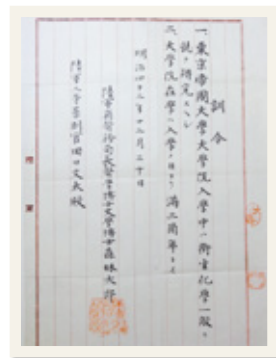 訓令
一、東京帝國大學大學院入學中ハ衛生化學一般ヲ
説ヲ研究スヘシ
二、大學院在學ハ入學ノ日ヨリ満三箇年トス
明治四十二年十二月二十日
陸軍省醫務局長醫學博士文學博士森林太郎
陸軍二等藥剤官田口文太殿
陸軍